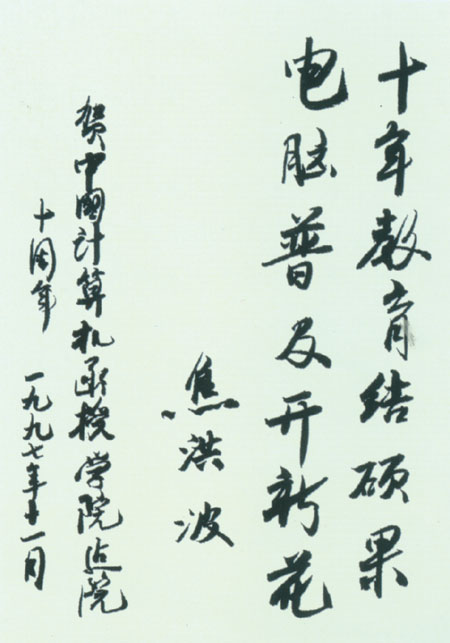 十年教育结硕果
电脑普及开新花
焦洪波
贺中国计算机函授学院建院
十周年
一九九七年十一月